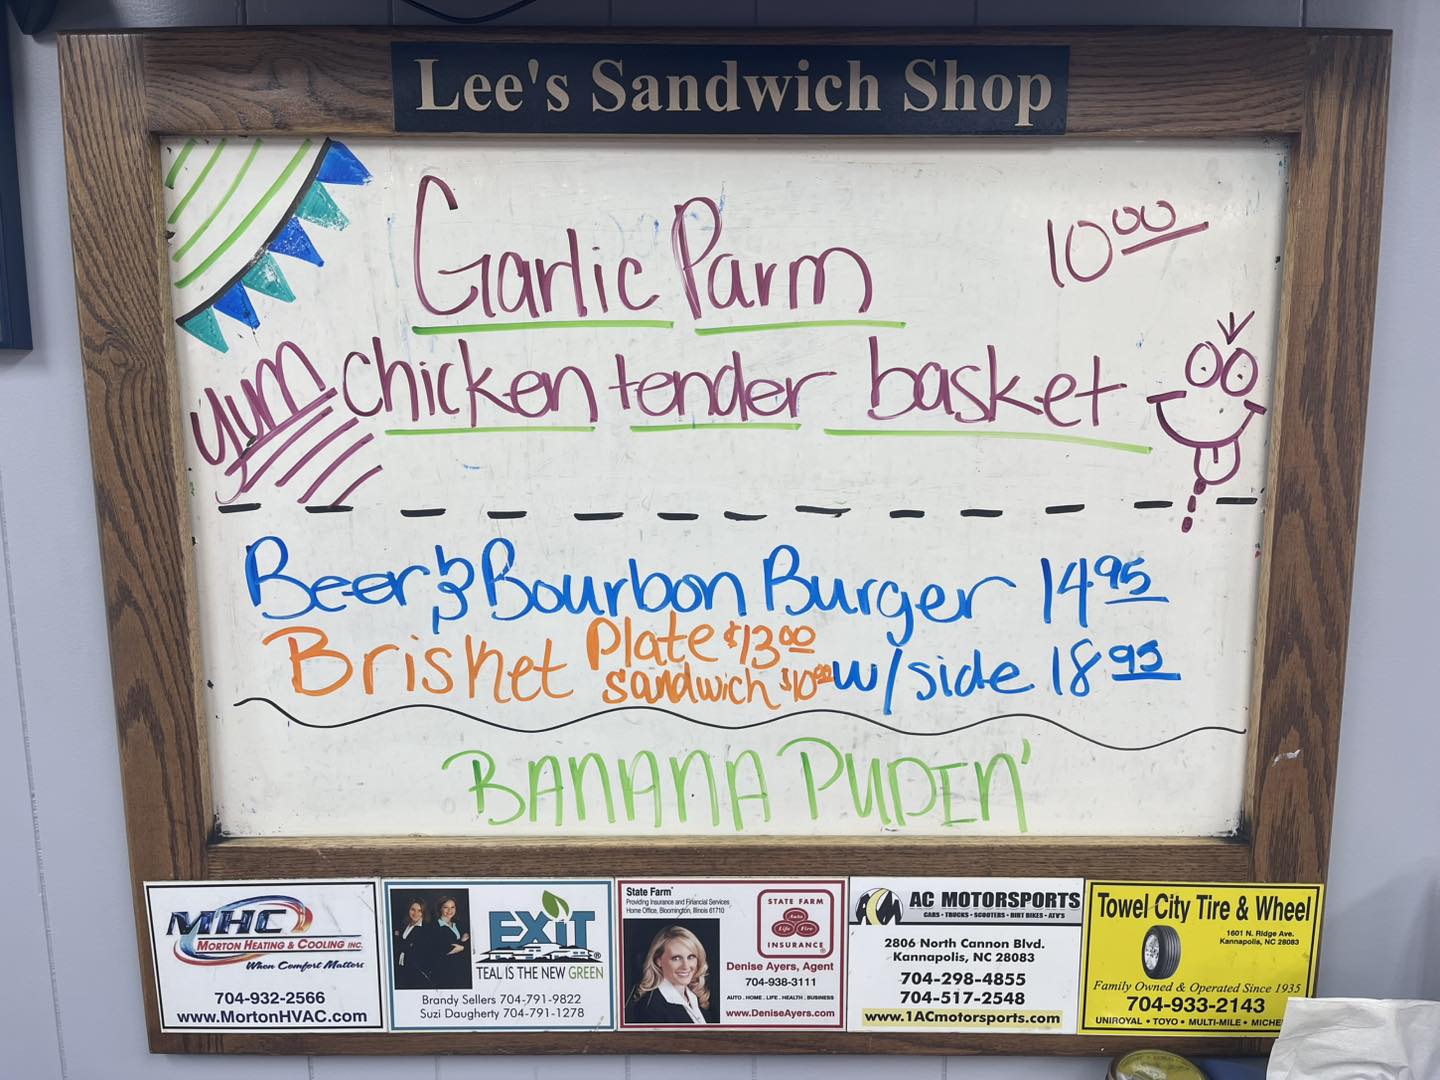 Lee's Sandwich Shop
Garlic Parm 10.00
yum chicken tender basket
Beer & Bourbon Burger 14.95
Brisket Plate $13.00
sandwich $10.00 w/side 18.95
BANANA PUDIN'
MHC
MORTON HEATING & COOLING INC.
When Comfort Matters
704-932-2566
www.MortonHVAC.com
EXIT
TEAL IS THE NEW GREEN
Brandy Sellers 704-791-9822
Suzi Daugherty 704-791-1278
State Farm
Providing Insurance and Financial Services
Home Office, Bloomington, Illinois 61710
STATE FARM
Auto
Life Fire
INSURANCE
Denise Ayers, Agent
704-938-3111
AUTO . HOME . LIFE . HEALTH . BUSINESS
www.DeniseAyers.com
AC MOTORSPORTS
CARS • TRUCKS • SCOOTERS • DIRT BIKES • ATV'S
2806 North Cannon Blvd.
Kannapolis, NC 28083
704-298-4855
704-517-2548
www.1ACmotorsports.com
Towel City Tire & Wheel
1601 N. Ridge Ave.
Kannapolis, NC 28083
Family Owned & Operated Since 1935
704-933-2143
UNIROYAL • TOYO • MULTI-MILE • MICHE